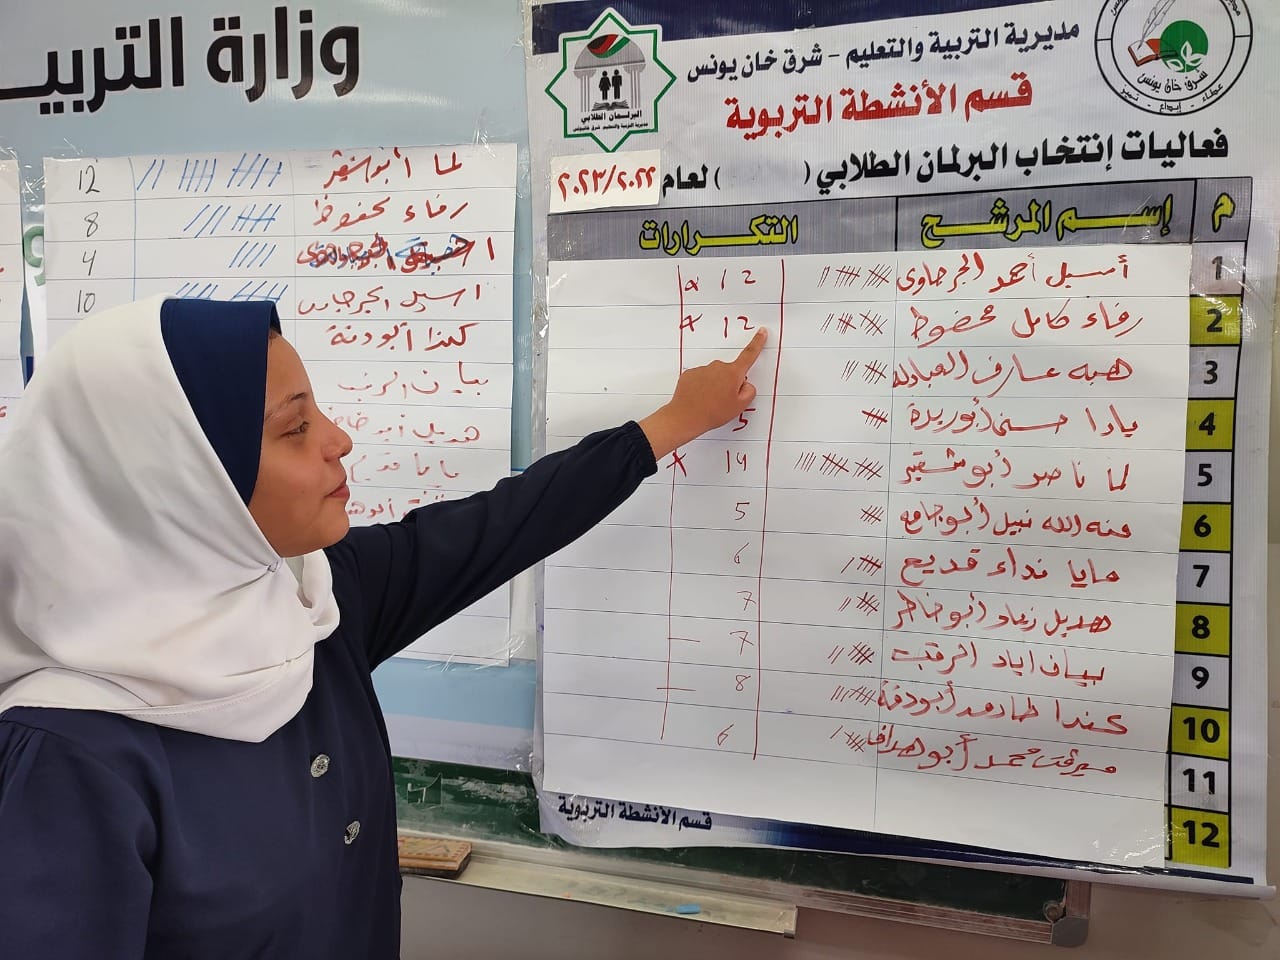 وزارة التربيـ
مديرية التربية والتعليم - شرق خان يونس
قسم الأنشطة التربوية
فعاليات إنتخاب البرلمان الطلابي ( ) لعام ٢٠٢٣/٢٠٢٢
البرلمان الطلابي
شرق خان يونس
عطاء - إبداع - تميز
م إسم المرشح التكرارات
1 أسيل أحمد الجرجاوي 12
2 رفاء كامل محفوظ 12
3 هبه عارف العبادله
4 يارا حسني أبو ريدة 5
5 لما ناصر أبو شقير 14
6 منه الله نبيل أبو جامع 5
7 مايا نداء قديح 6
8 هديل زياد أبو خاطر 7
9 بيان اياد الرقب 7
10 كندا أبودقة 8
11 ميرفت محمد أبو هداف 6
12
قسم الأنشطة التربوية
لما أبو شقير 12
رفاء محفوظ 8
4
اسيل الجرجاوي 10
كندا أبودقة
بيان الرقب
هديل أبو خاطر
مايا قديح